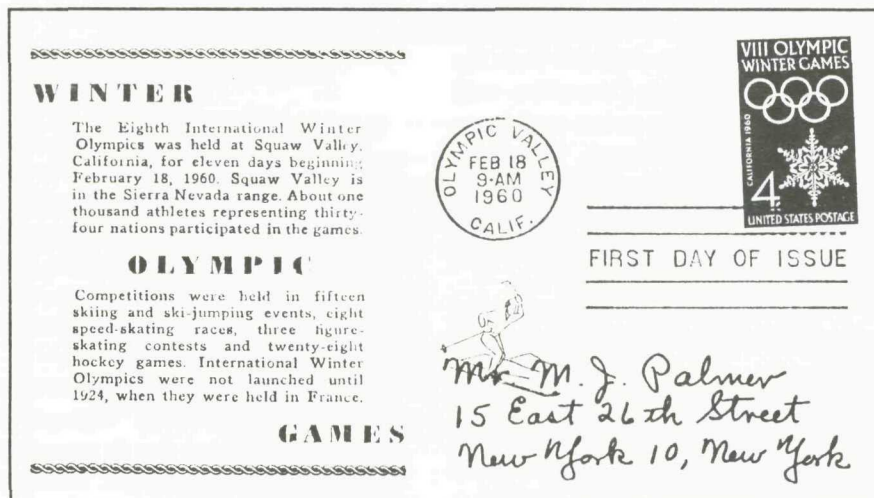 WINTER
The Eighth International Winter
Olympics was held at Squaw Valley,
California, for eleven days beginning
February 18, 1960. Squaw Valley is
in the Sierra Nevada range. About one
thousand athletes representing thirty-
four nations participated in the games.
OLYMPIC
Competitions were held in fifteen
skiing and ski-jumping events, eight
speed-skating races, three figure-
skating contests and twenty-eight
hockey games. International Winter
Olympics were not launched until
1924, when they were held in France.
GAMES
OLYMPIC VALLEY
FEB 18
9-AM
1960
CALIF.
VIII OLYMPIC
WINTER GAMES
CALIFORNIA 1960
4¢
UNITED STATES POSTAGE
FIRST DAY OF ISSUE
Mr. M. J. Palmer
15 East 26th Street
New York 10, New York